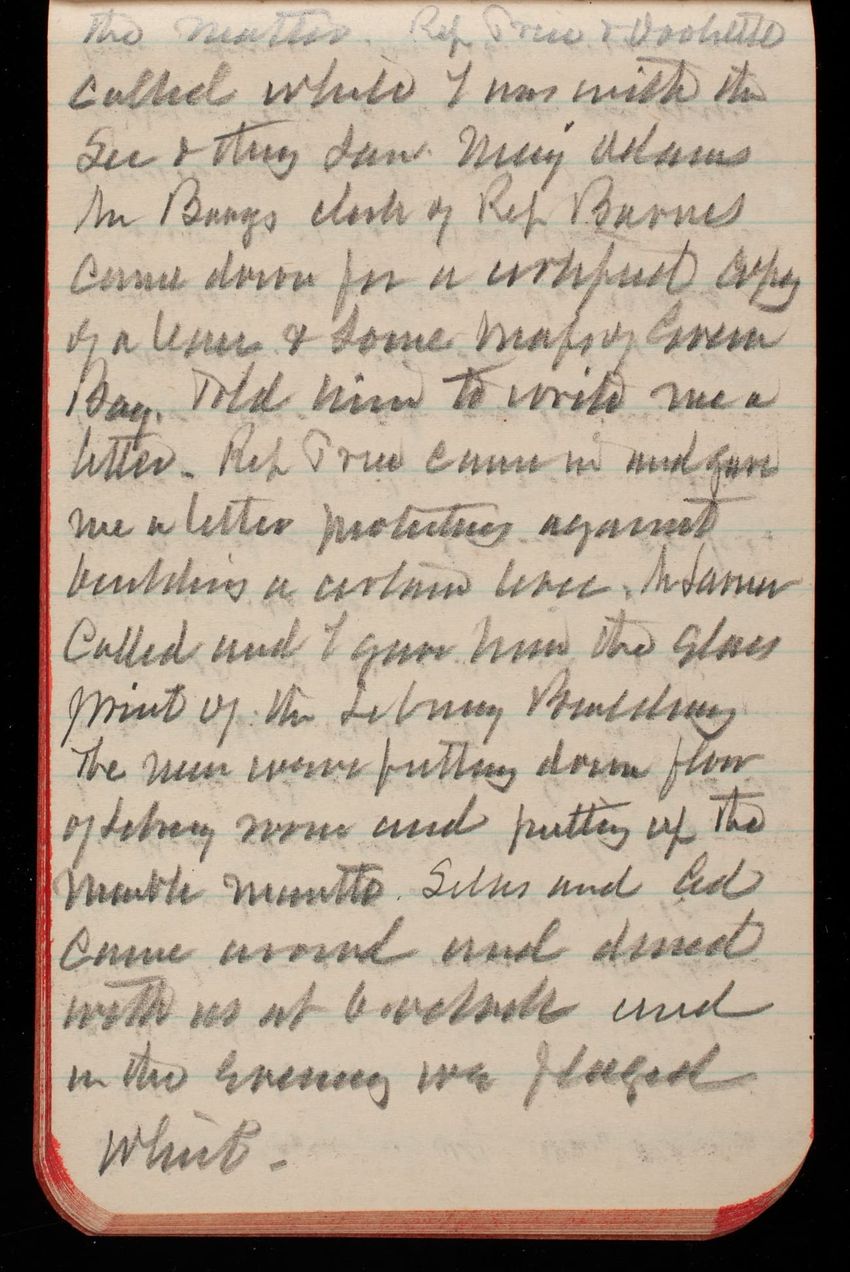 the matter. Rep Price & Doolittle
called while I was with the
Sec & they saw Maj Adams
Mr Boggs clerk of Rep Barnes
came down for a certified copy
of a lease & some maps of Green
Bay. Told him to write me a
letter. Rep Price came in and gave
me a letter protesting against
building a certain levee. Mr
Called and I gave him the glass
print of the Library Building
The men were putting down floor
of Library room and putting up the
Marble mantle. Silas and Ed
came around and dined
with us at 6 oclock and
in the evening we played
Whist.